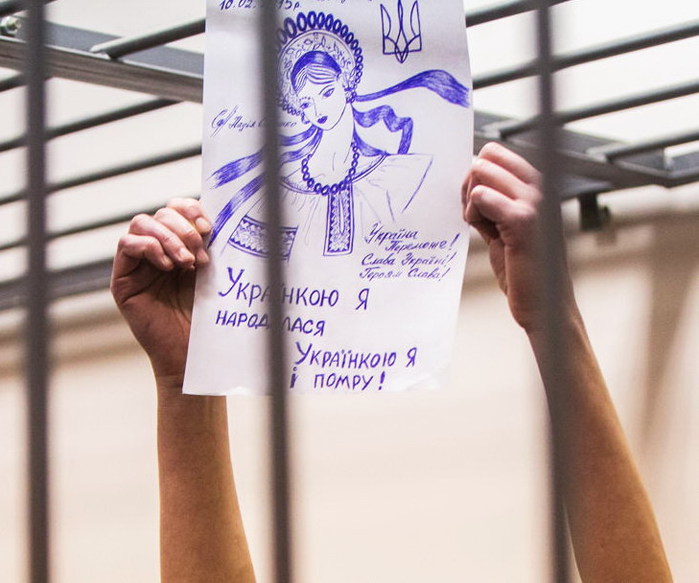 10.02. 15р
Надія
Україна
Переможе!
Слава Україні!
Героям Слава!
Українкою я
народилася
Українкою я
і помру!